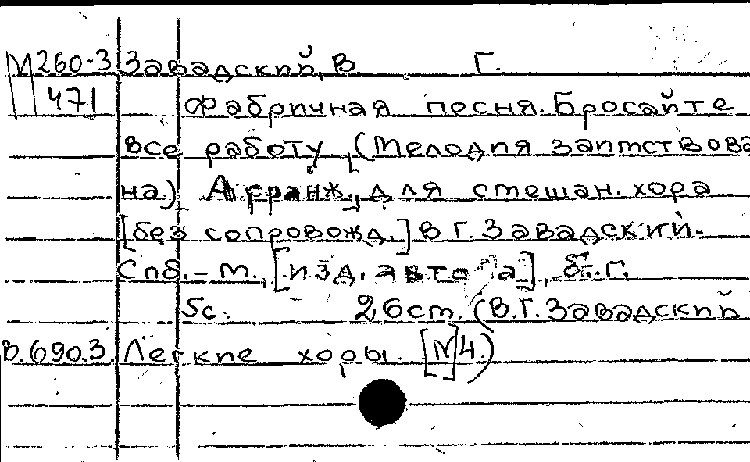 М260-3 Завадский, В Г.
471 Фабричная песня. Бросайте
все работу, (Мелодия заимствова
на) Арранж. для смешан. хора
[без сопровожд.] В Г. Завадский.
Спб. – М., [изд. автора], б. г.
5с. 26см. (В.Г. Завадский
В.690.3 Легкие хоры. [N4.)